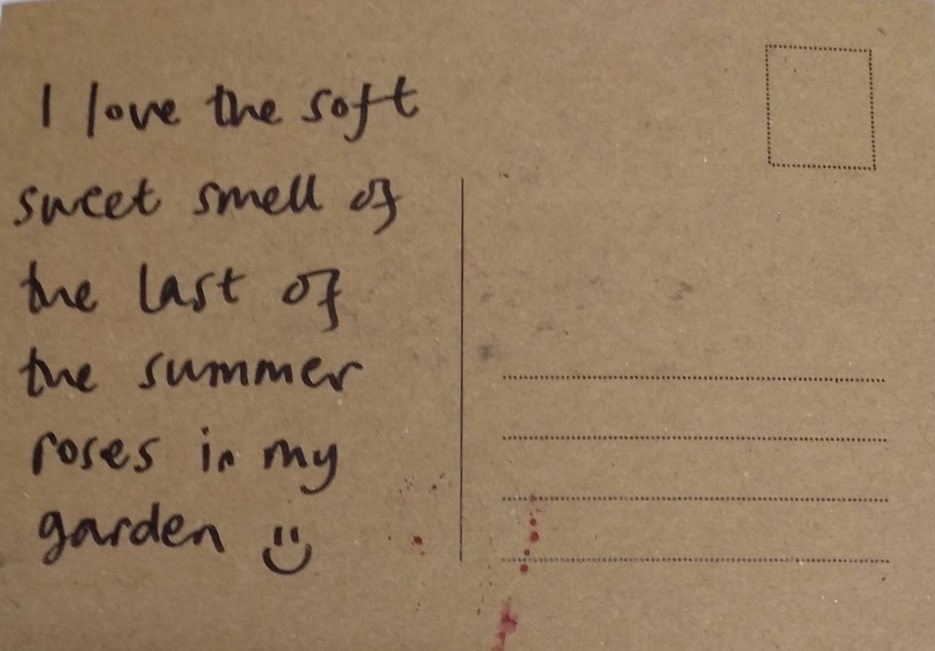 I love the soft
sweet smell of
the last of
the summer
roses in my
garden